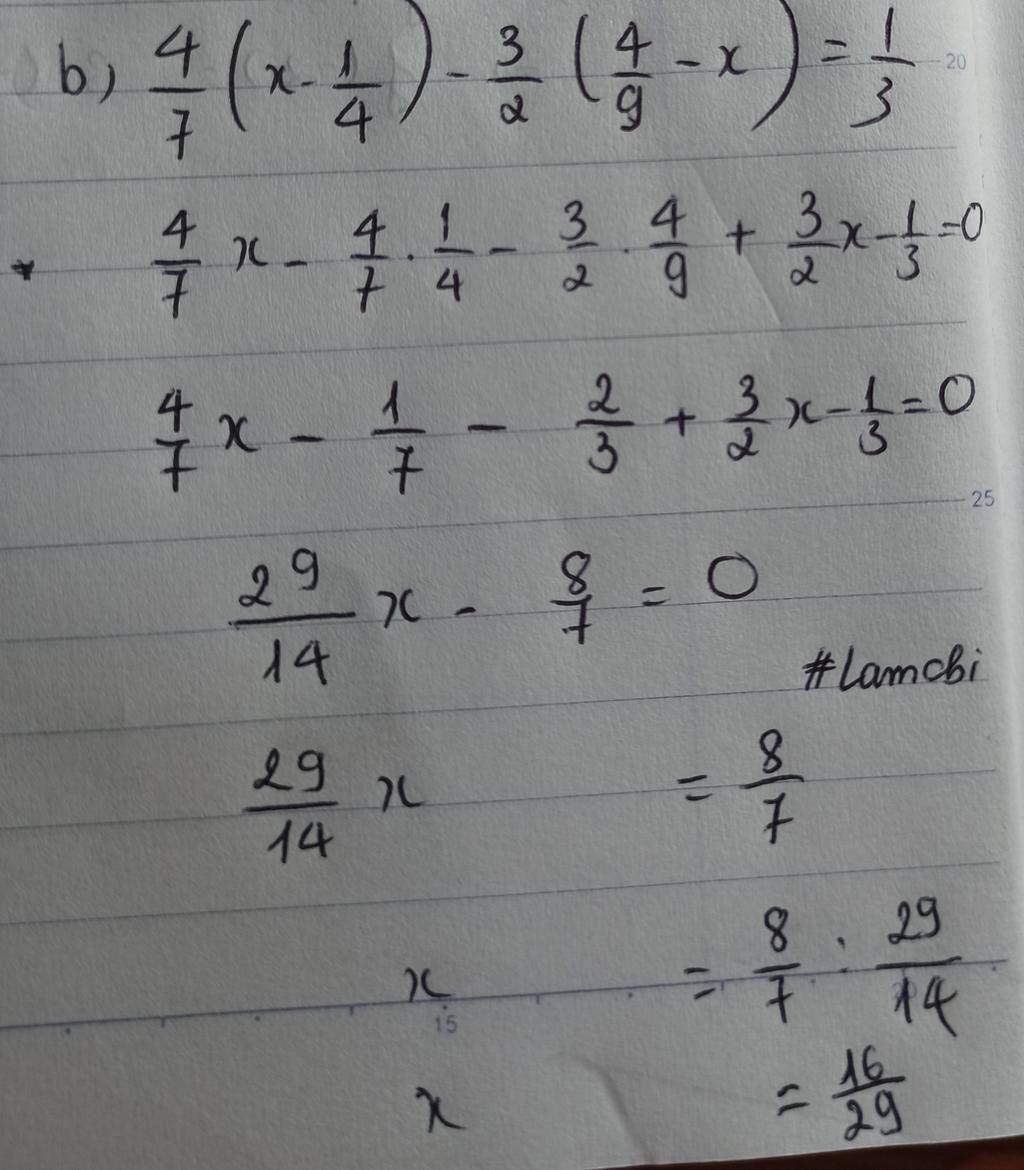 b) 4/7 (x - 1/4) - 3/2 (4/9 - x) = 1/3
20
4/7 x - 4/7 . 1/4 - 3/2 . 4/9 + 3/2 x - 1/3 = 0
4/7 x - 1/7 - 2/3 + 3/2 x - 1/3 = 0
25
29/14 x - 8/7 = 0
#Lamcbi
29/14 x = 8/7
x = 8/7 : 29/14
15
x = 16/29